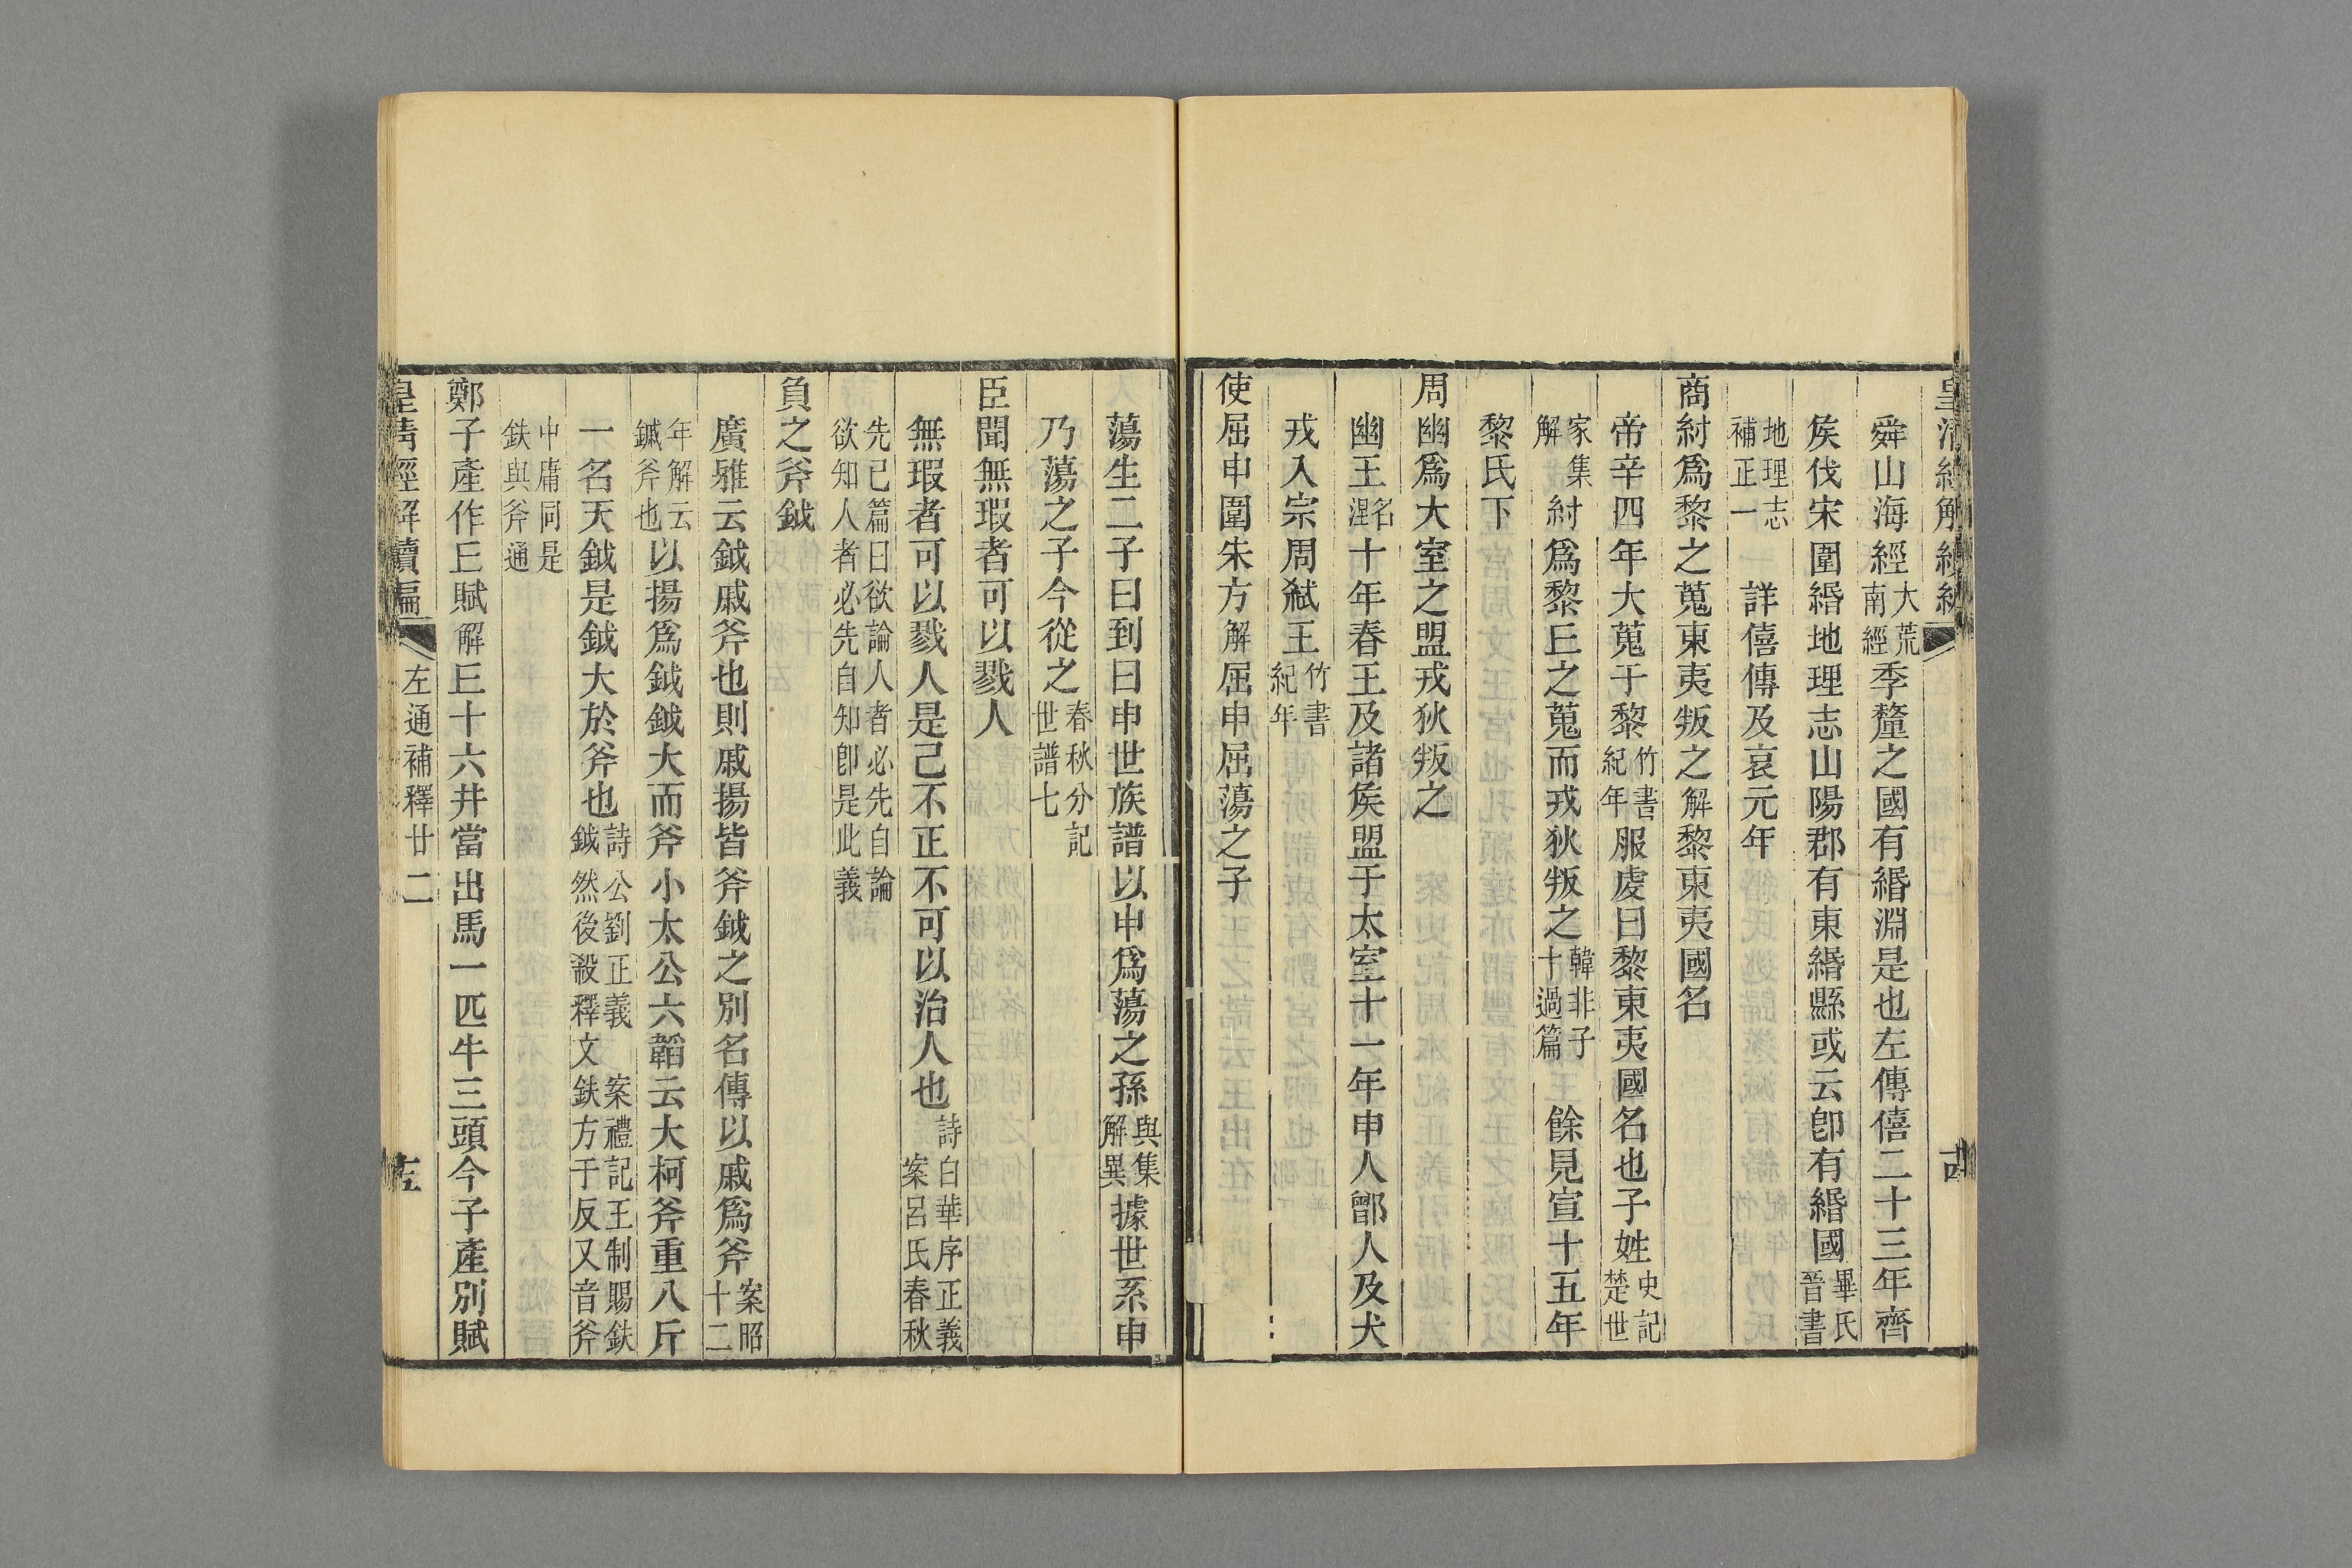 舜山海經大荒南經季釐之國有緡淵是也左傳僖二十三年齊
矦伐宋圍緡地理志山陽郡有東緡縣或云卽有緡國畢氏晉書
地理志補正一詳僖傳及哀元年
商紂爲黎之蒐東夷叛之解黎東夷國名
帝辛四年大蒐于黎竹書紀年服虔曰黎東夷國名也子姓史記楚世
家集解紂爲黎丘之蒐而戎狄叛之韓非子十過篇餘見宣十五年
黎氏下
周幽爲大室之盟戎狄叛之
幽王名湼十年春王及諸矦盟于太室十一年申人鄫人及犬
戎入宗周弑王竹書紀年
使屈申圍朱方解屈申屈蕩之子
蕩生二子曰到曰申世族譜以申爲蕩之孫與集解異據世系申
乃蕩之子今從之春秋分記世譜七
臣聞無瑕者可以戮人
無瑕者可以戮人是己不正不可以治人也詩白華序正義案呂氏春秋
先己篇曰欲論人者必先自論欲知人者必先自知卽是此義
負之斧鉞
廣雅云鉞戚斧也則戚揚皆斧鉞之別名傳以戚爲斧案昭十二
年解云鏚斧也以揚爲鉞鉞大而斧小太公六韜云大柯斧重八斤
一名天鉞是鉞大於斧也詩公劉正義 案禮記王制賜鈇鉞然後殺釋文鈇方于反又音斧
中庸同是鈇與斧通
鄭子產作丘賦解丘十六井當出馬一匹牛三頭今子產別賦
皇清經解續編
左通補釋廿二